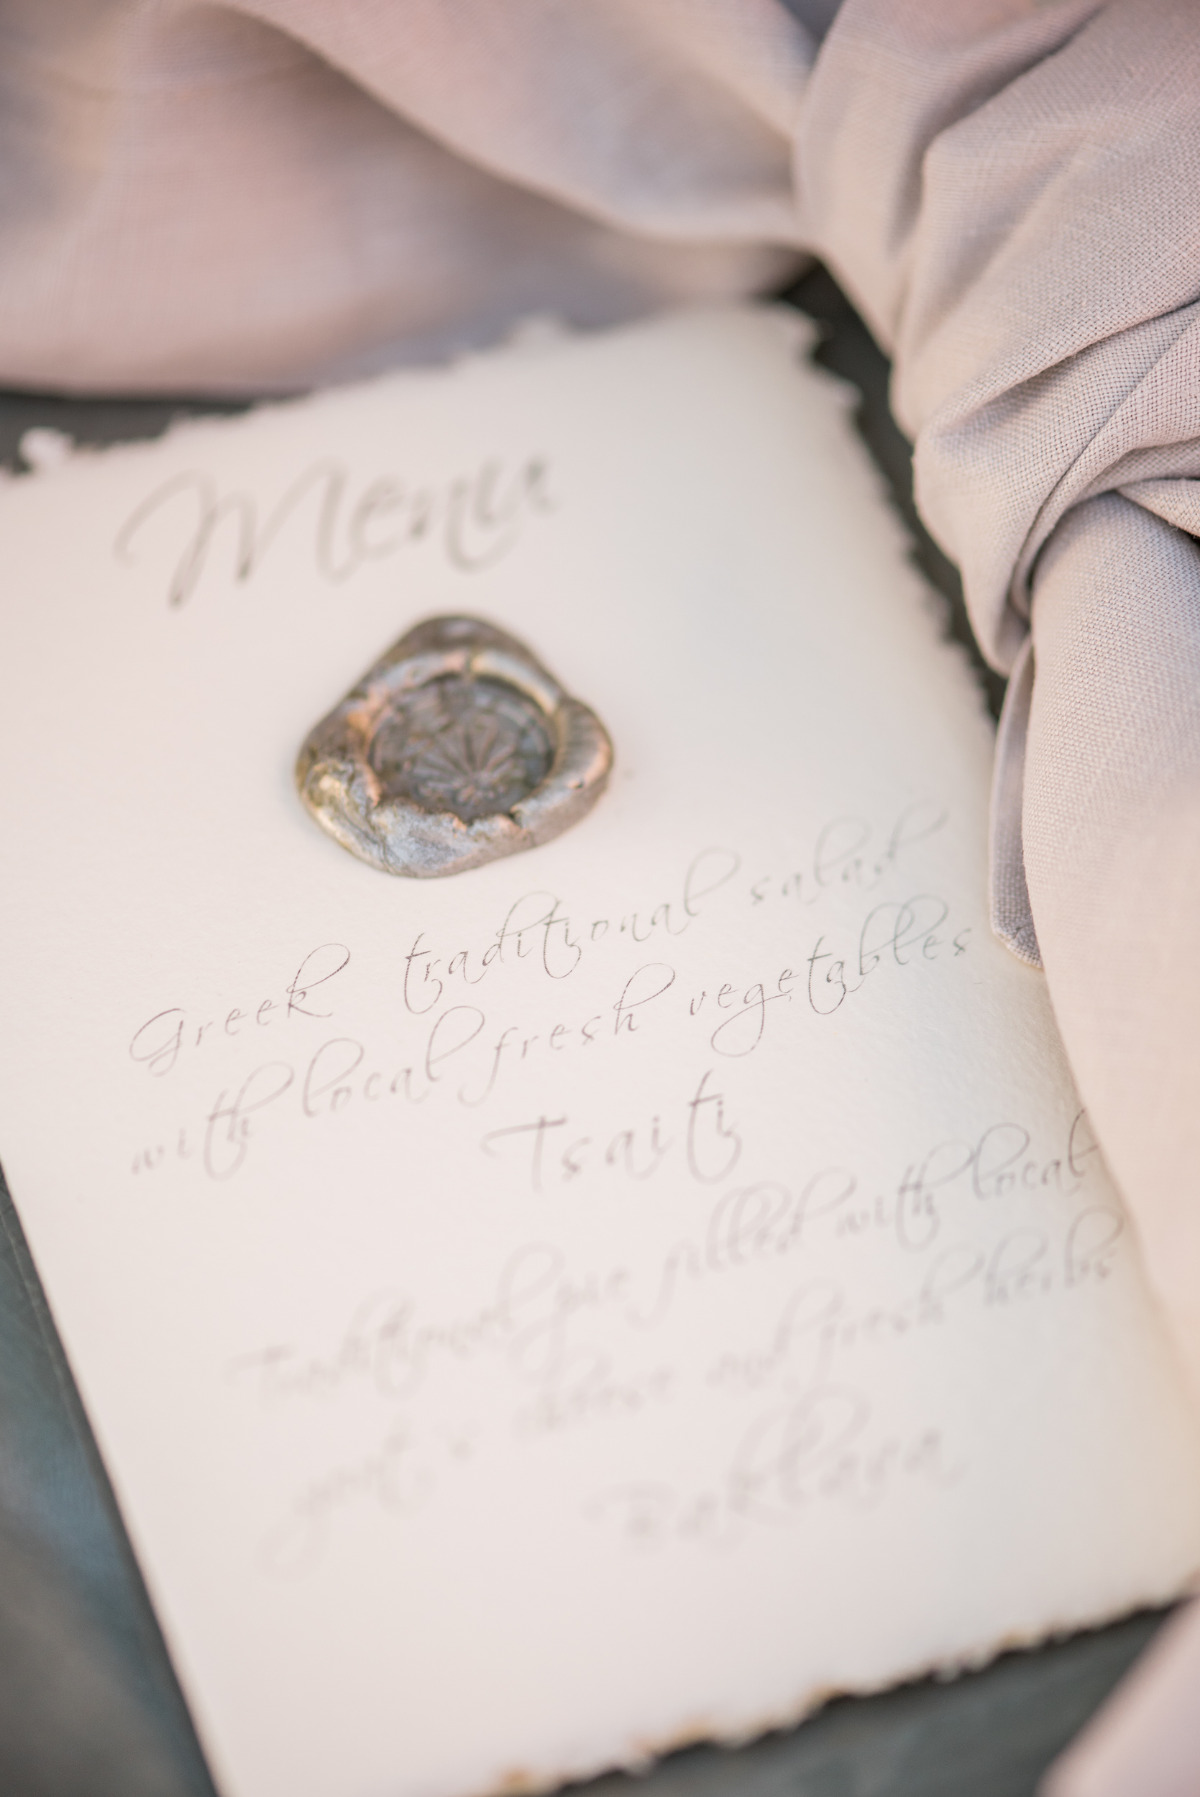 Menu
Greek traditional salad
with local fresh vegetables
Tsaiti
Traditional pie filled with local
goat's cheese and fresh herbs
Baklava